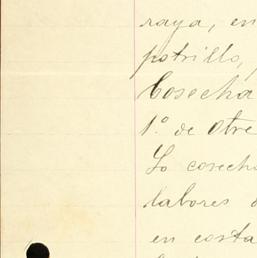 raya, en
potrillo,
Cosecha
1.º de Otre
Lo cosech
labores d
en costa